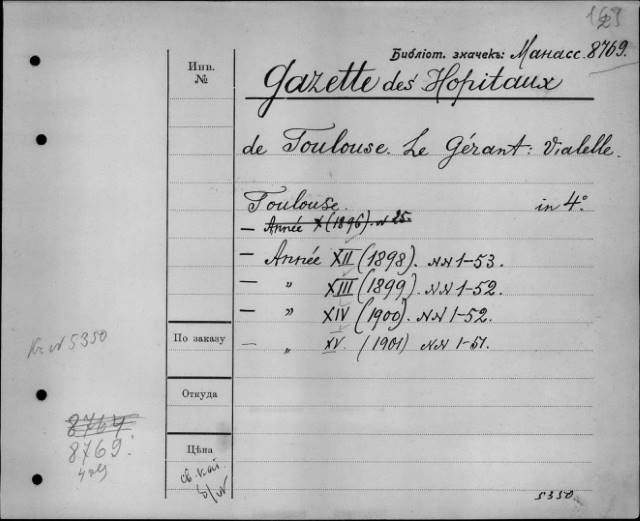 Библiот. значекъ: Манасс. 8769.
Инв.
№
Gazette des Hopitaux
de Toulouse. Le Gérant: Vialelle.
Toulouse. in 4º
— Année X (1896). N 25.
— Année XII (1898). NN 1-53.
— „ XIII (1899). NN 1-52.
— „ XIV (1900). NN 1-52.
— „ XV. (1901) NN 1-51.
По заказу
Откуда
Цѣна
N 5350
8764
8769.
5350